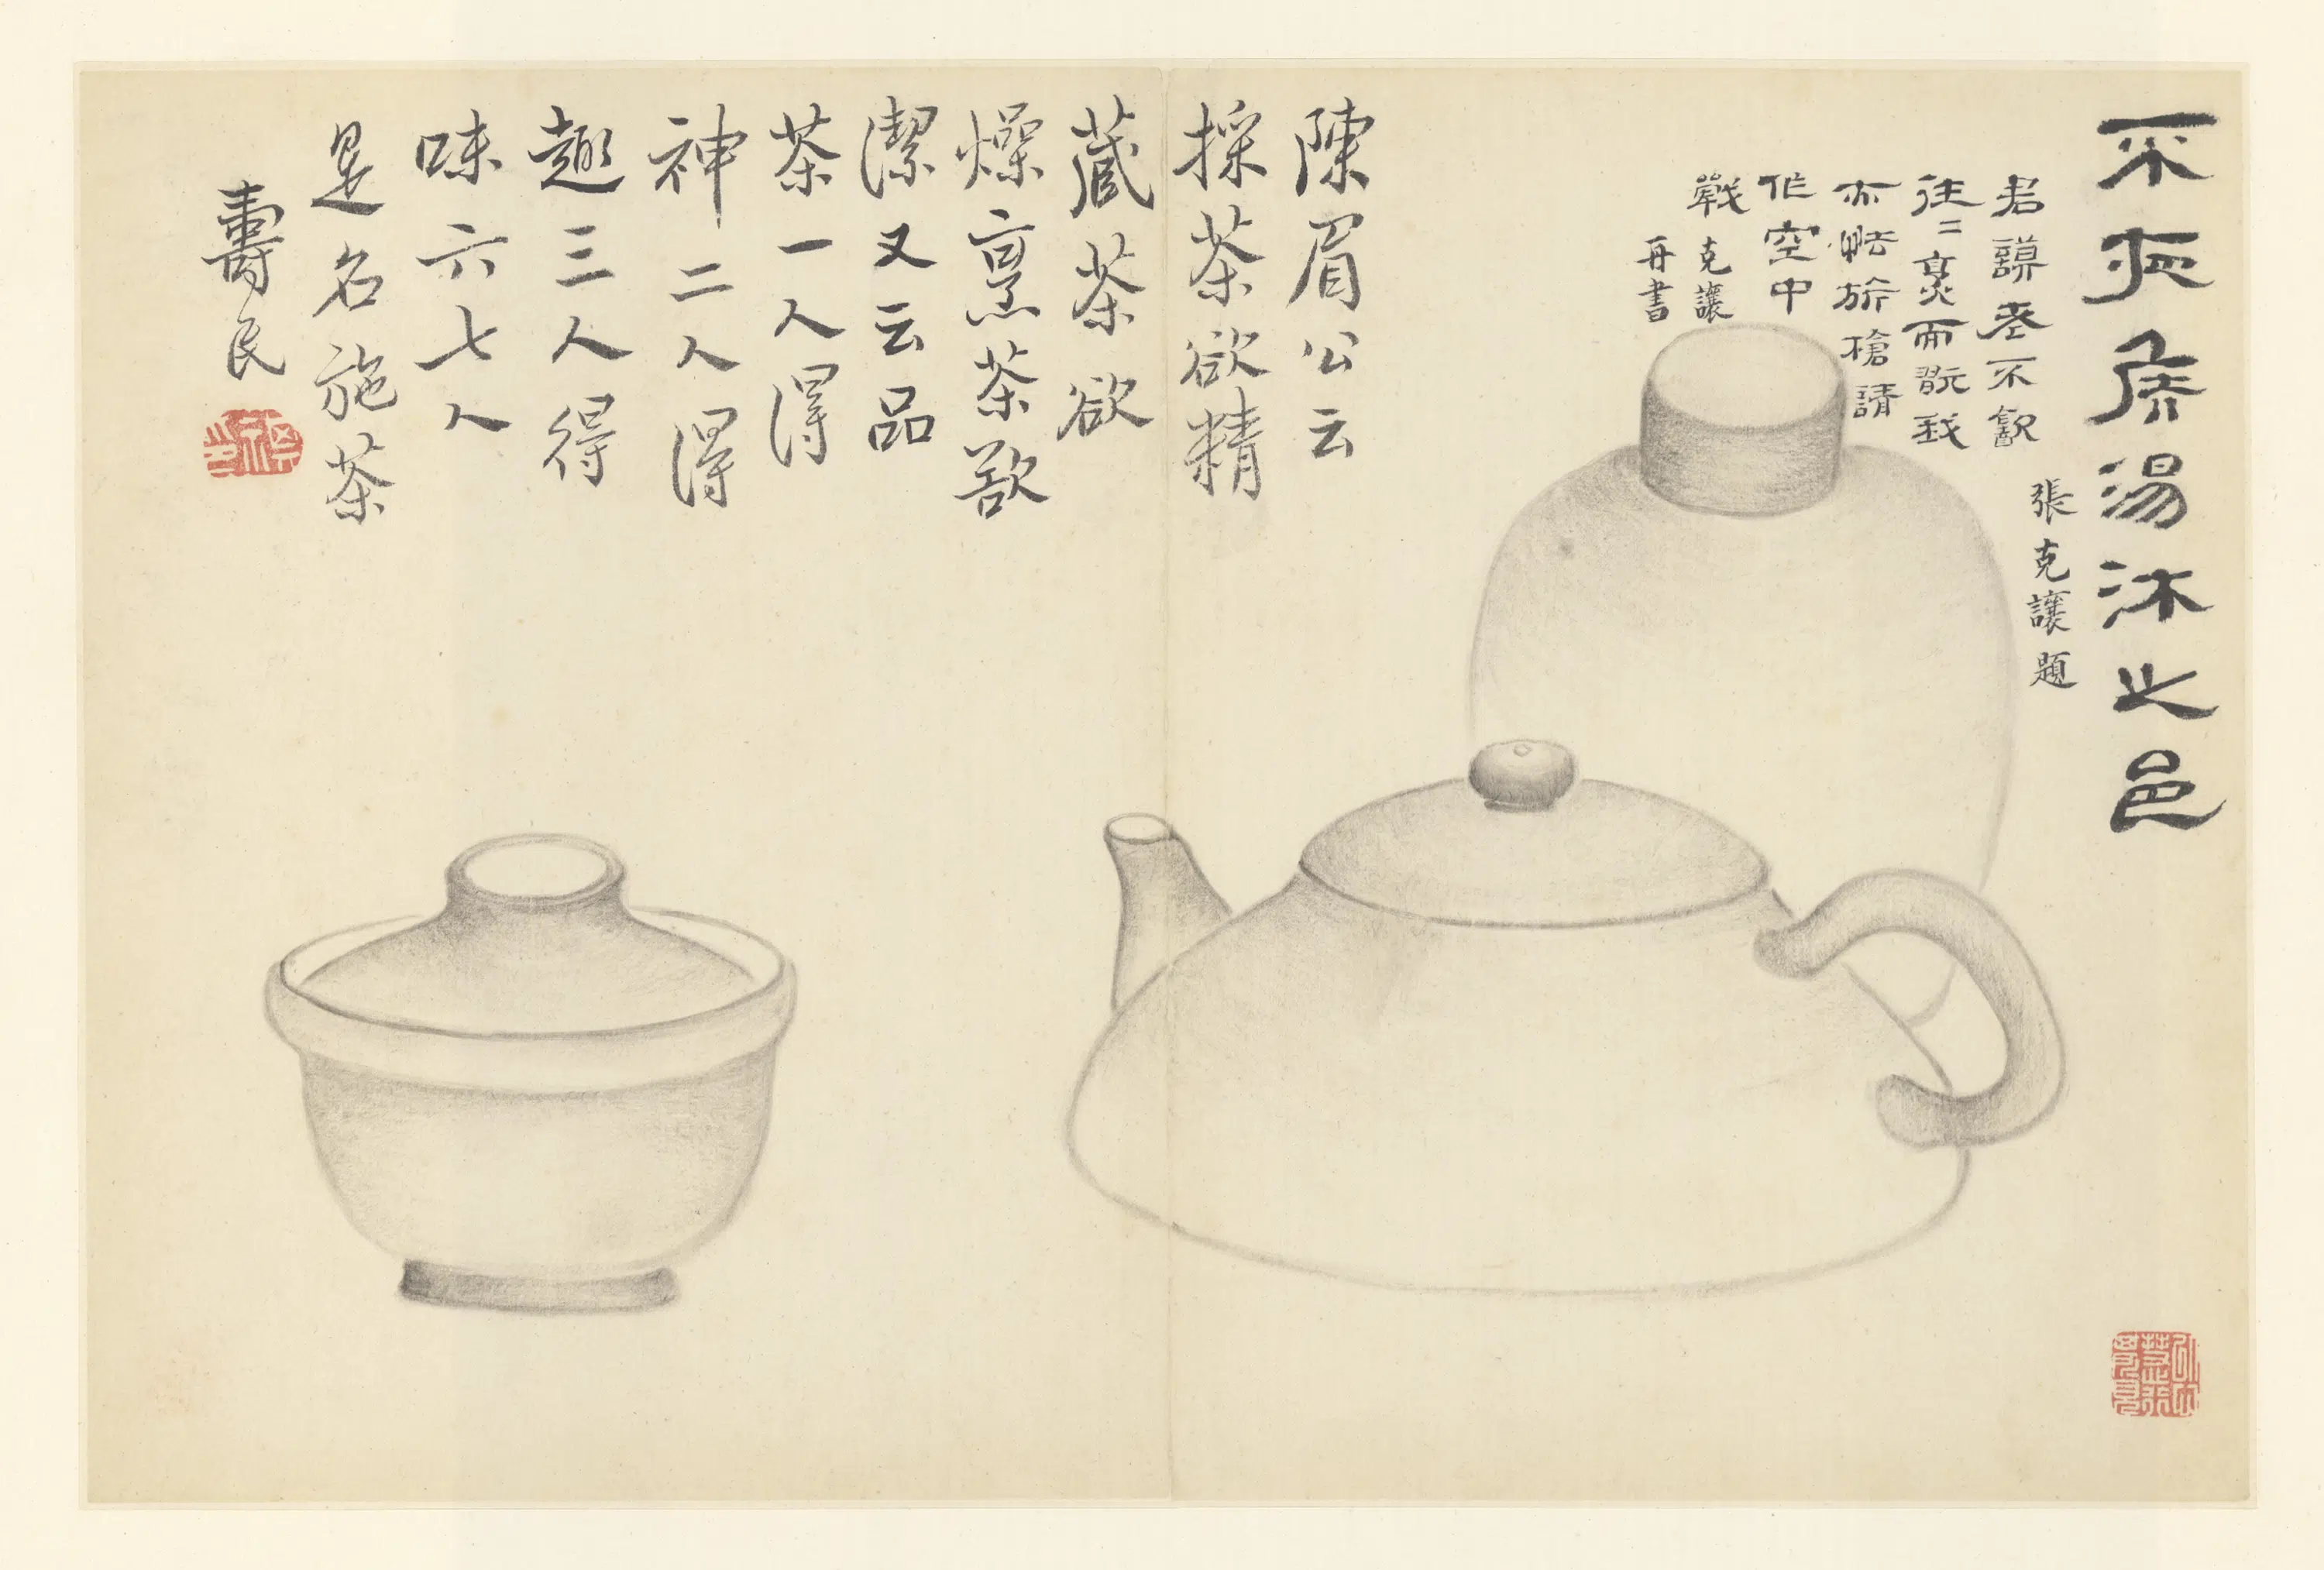 不夜侯湯沐之邑
張克讓題
君謨老不歠
往〻烹而翫我
亦怯旂槍請
作空中
戰 克讓
再書
陳眉公云
採茶欲精
藏茶欲
燥烹茶欲
潔又云品
茶一人得
神二人得
趣三人得
味六七人
是名施茶
壽民